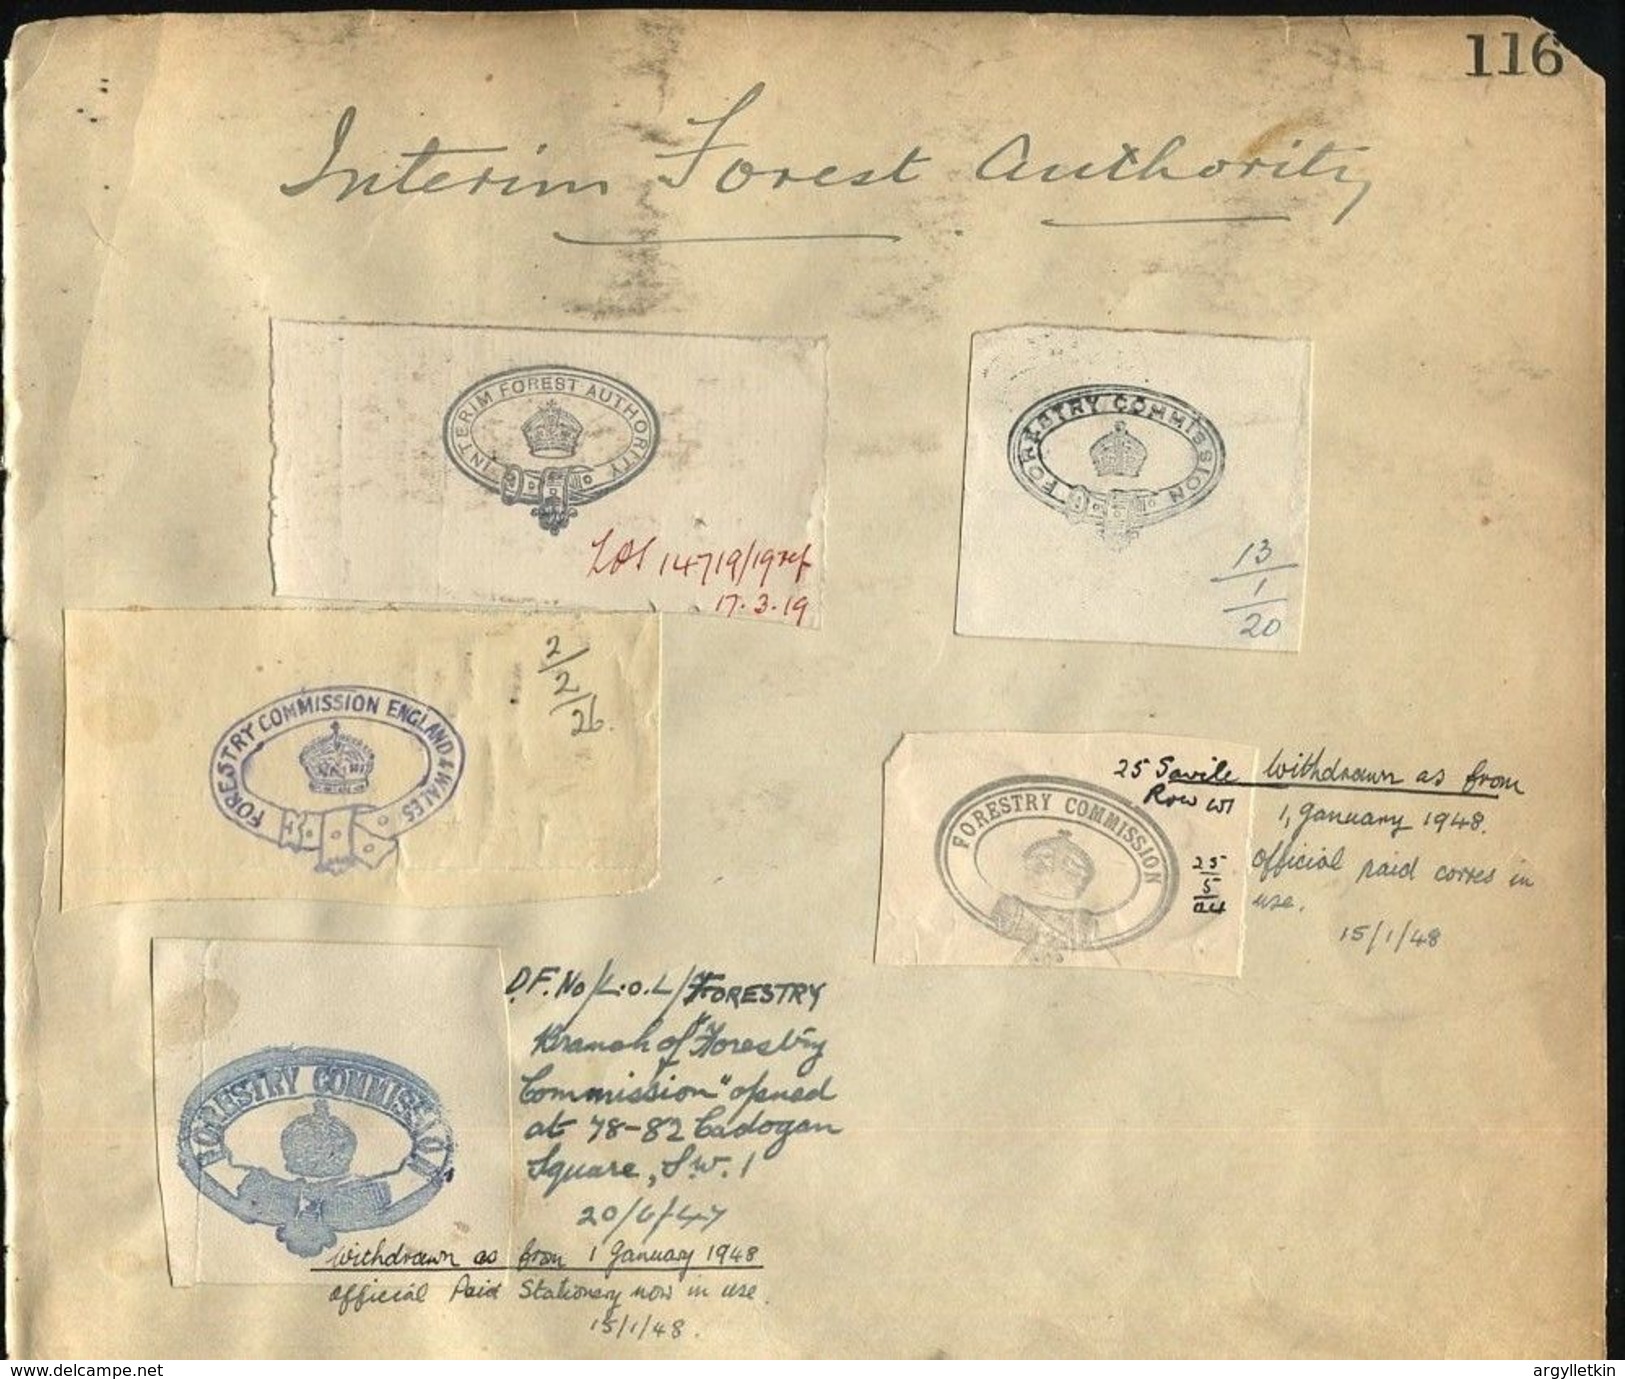 116
Interim Forest Authority
INTERIM FOREST AUTHORITY
14719/19
17.3.19
FORESTRY COMMISSION
13
1
20
2/2/26.
FORESTRY COMMISSION ENGLAND & WALES
25 Savile
Row W1
FORESTRY COMMISSION
25
5
Withdrawn as from
1, January 1948.
Official paid corres in
use.
15/1/48
FORESTRY COMMISSION
D.F. No/L.O.L/FORESTRY
Branch of "Forestry
Commission" opened
at 78-82 Cadogan
Square, S.W.1
20/6/47
Withdrawn as from 1 January 1948
Official Paid Stationery now in use.
15/1/48.
delcampe.net
argylletkin